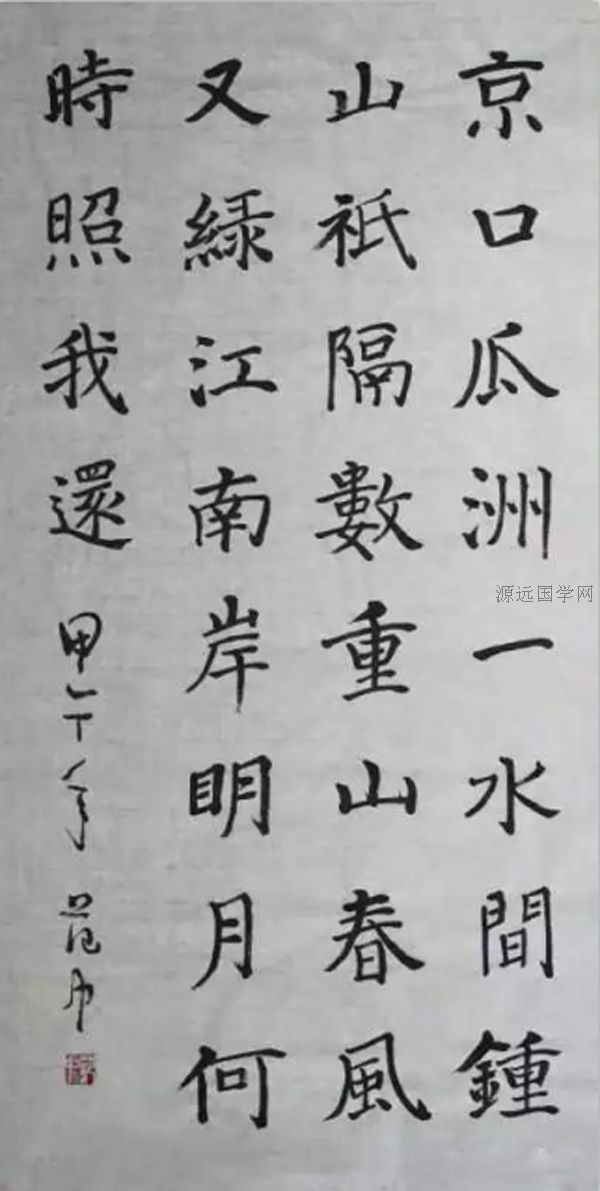 京口瓜洲一水間鍾
山祇隔數重山春風
又緑江南岸明月何
時照我還
甲午年
源远国学网